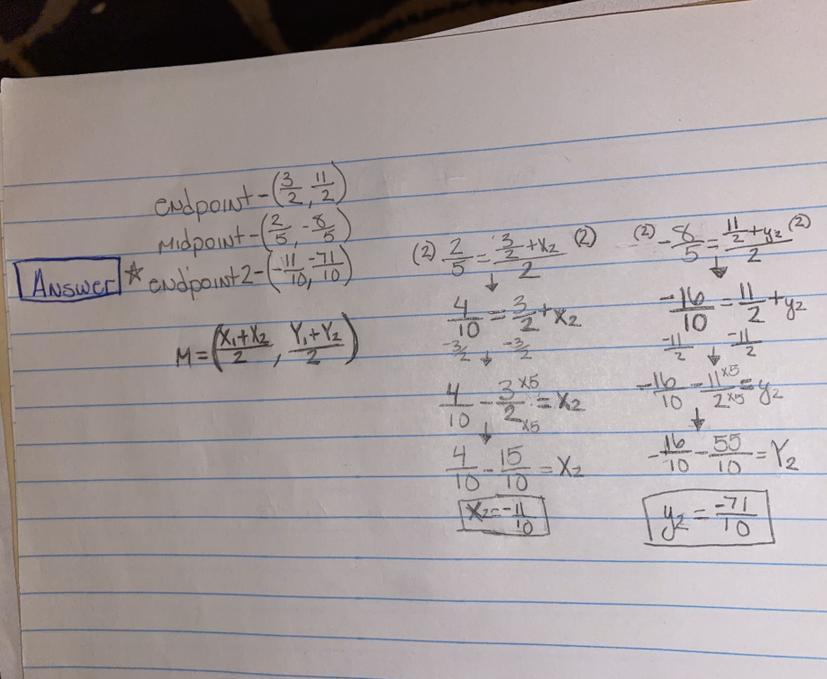 endpoint-(3/2, 11/2)
midpoint-(2/5, -8/5)
Answer ☆ endpoint2-(-11/10, -71/10)
M=(X₁+X₂/2, Y₁+Y₂/2)
(2) 2/5 = 3/2+x₂/2 (2)
↓
4/10 = 3/2 + x₂
-3/2 ↓ -3/2
4/10 - 3/2 ×5 ×5 = x₂
↓
4/10 - 15/10 = x₂
x₂=-11/10
(2) -8/5 = 11/2+y₂/2 (2)
↓
-16/10 = 11/2 + y₂
-11/2 ↓ -11/2
-16/10 - 11×5/2×5 = y₂
↓
-16/10 - 55/10 = Y₂
y₂ = -71/10